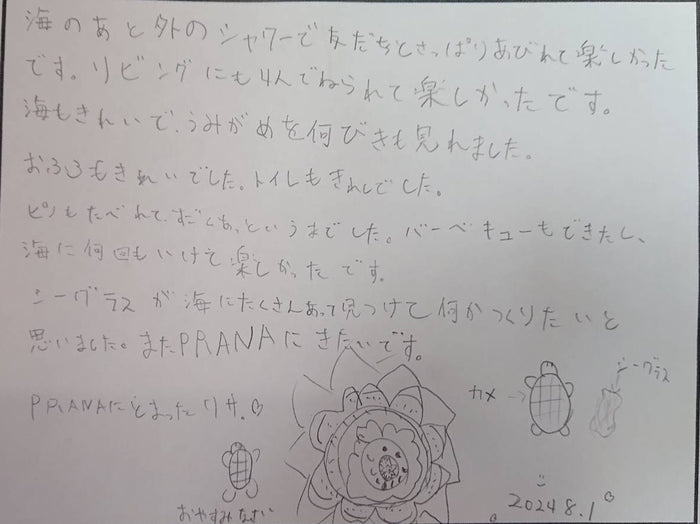 海のあと外のシャワーで友だちとさっぱりあびれて楽しかった
です。リビングにも4人でねられて楽しかったです。
海もきれいで、うみがめを何びきも見れました。
おふろもきれいでした。トイレもきれいでした。
ピノもたべれて、すごくもっというまでした。バーベキューもできたし、
海に何回もいけて楽しかったです。
シーグラスが海にたくさんあって見つけて何かつくりたいと
思いました。またPRANAにきたいです。
PRANAにとまったリサ♡
カメ→
シーグラス
おやすみなさい
2024 8.1